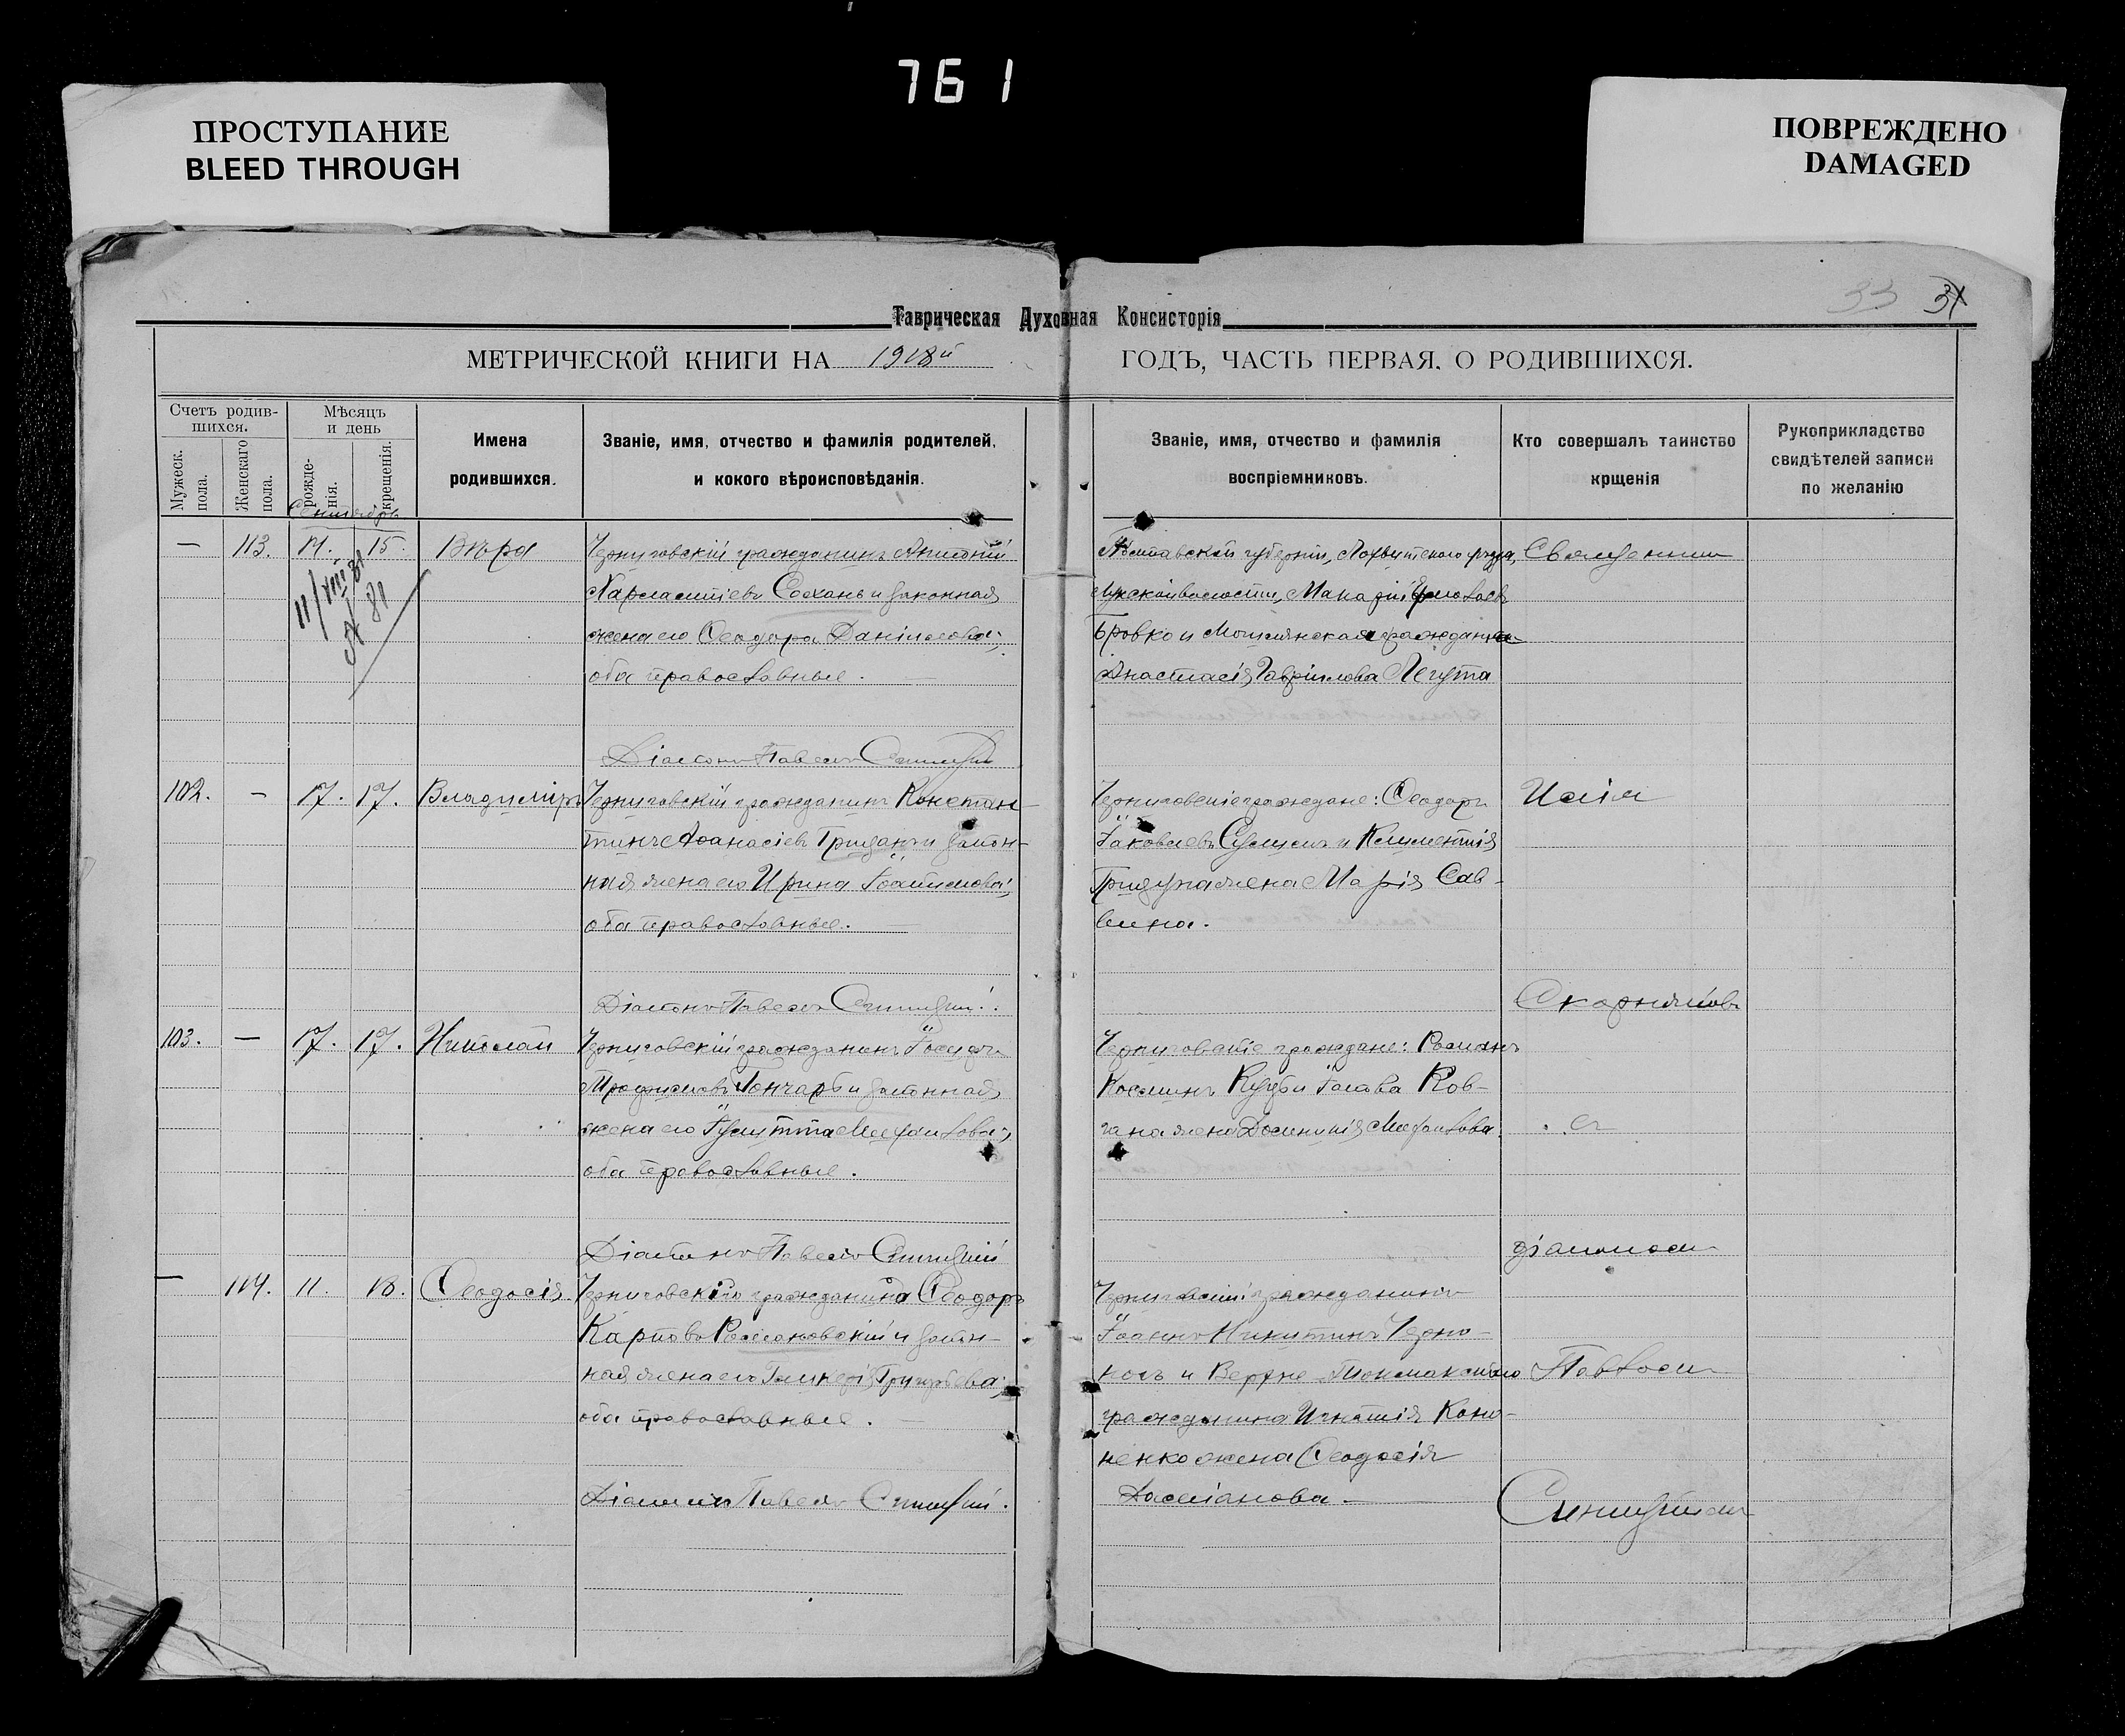 761
ПРОСТУПАНИЕ
BLEED THROUGH
ПОВРЕЖДЕНО
DAMAGED
33 31
Таврическая Духовная Консисторія
МЕТРИЧЕСКОЙ КНИГИ НА 1918й ГОДЪ, ЧАСТЬ ПЕРВАЯ. О РОДИВШИХСЯ.
Счетъ родив-
шихся.
Мужеск.
пола.
Женскаго
пола.
Мѣсяцъ
и день
рожде-
нія.
крещенія.
Имена
родившихся.
Званіе, имя, отчество и фамилія родителей,
и кокого вѣроисповѣданія.
Званіе, имя, отчество и фамилія
воспріемниковъ.
Кто совершалъ таинство
крщенія
Рукоприкладство
свидѣтелей записи
по желанію
Сентябрь
— 113. 15. Вѣра
11/VIII 31
81
Черниговскій гражданинъ Антоній
Харлампіевъ и законная
жена его Ѳеодора Даніилова;
оба православные.
Діаконъ Павелъ Синицкій
Полтавской губерніи, Лохвитского уѣзда,
волости, Макарій
Бровко и гражданка
Анастасія Гавріилова Легута
Священник
102. — 17. 17. Владиміръ
Черниговскій гражданинъ Констан-
тинъ Аѳанасіевъ и закон-
ная жена его Ирина Іоакимова;
оба православные.
Діаконъ Павелъ Синицкій.
Черниговскіе граждане: Ѳеодоръ
Іаковлевъ и Климентія
жена Марія Сав-
вина.
Скорняков
103. — 17. 17. Николай
Черниговскій гражданинъ Іосифъ
Трофимовъ Гончаръ и законная
жена его Іулитта Меѳодіова;
оба православные.
Діаконъ Павелъ Синицкій
Черниговскіе граждане: Романъ
Космин и Іакова Ков-
жена
с
діаконом
— 114. 11. 18. Ѳеодосія.
Черниговскій гражданинъ Ѳеодоръ
Карповъ Романовскій и закон-
ная жена его Гликерія Григорьева;
оба православные.
Діаконъ Павелъ Синицкій.
Черниговскій гражданинъ
Іоаннъ Никитинъ Черно-
и Верхне-Токмакского
гражданина Игнатія Коно-
ненко жена Ѳеодосія
Павлом
Синицким